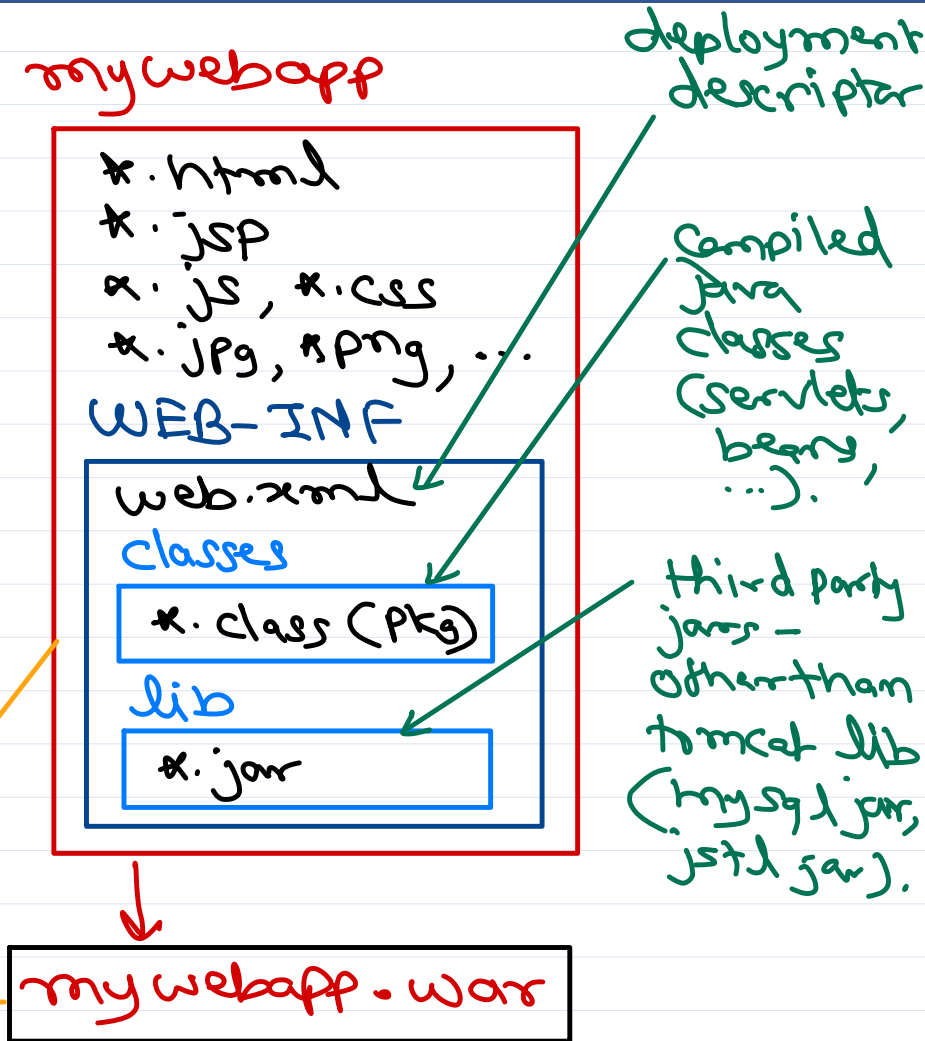 mywebapp
*.html
*.jsp
*.js, *.css
*.jpg, *png, ...
WEB-INF
web.xml
classes
*.class (pkg)
lib
*.jar
mywebapp.war
deployment
descriptor
Compiled
java
classes
(servlets,
beans,
...).
third party
jars -
other than
tomcat lib
(mysql jar,
jstl jar).